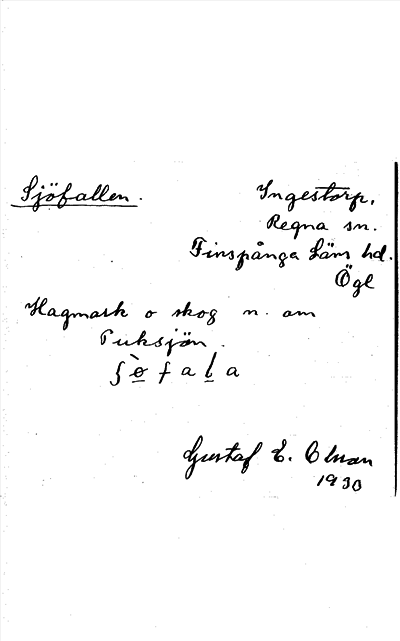 Sjöfallen.
Ingestorp,
Regna sn.
Finspånga läns hd.
Ögl
Hagmark o skog n. om
Puksjön.
Gustaf E. Olman
1930